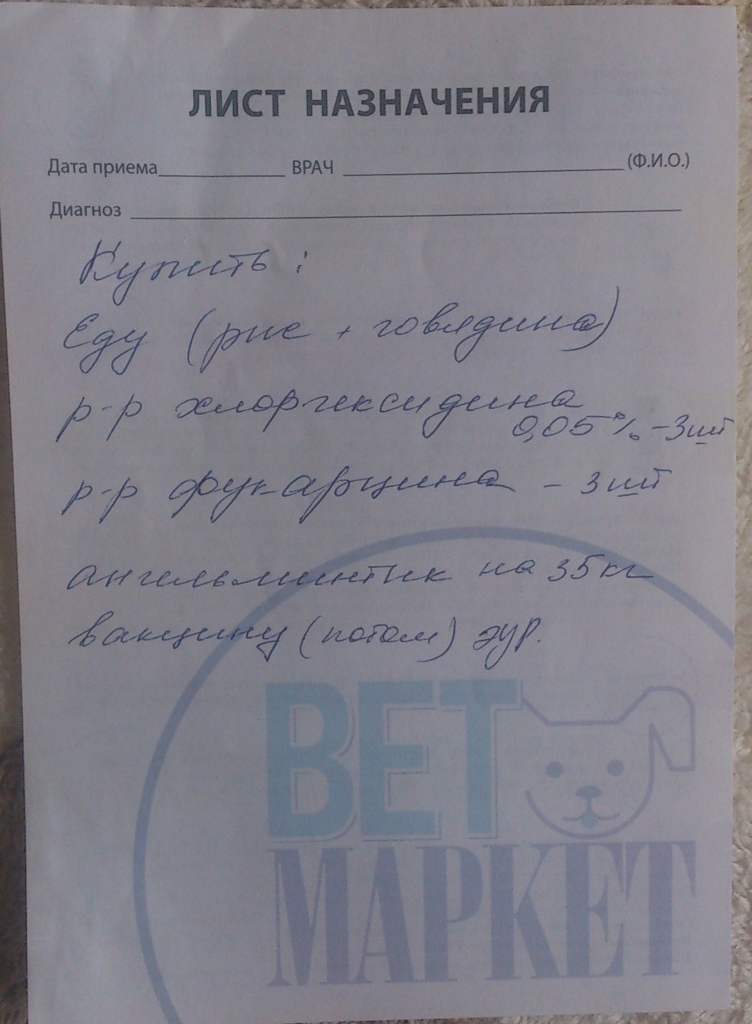 ЛИСТ НАЗНАЧЕНИЯ
Дата приема ВРАЧ (Ф.И.О.)
Диагноз
Купить:
Еду (рис + говядина)
р-р хлоргексидина
0,05% - 3шт
р-р фукарцина - 3шт
ангельминтик на 35кг
вакцину (потом)
ВЕТ
МАРКЕТ